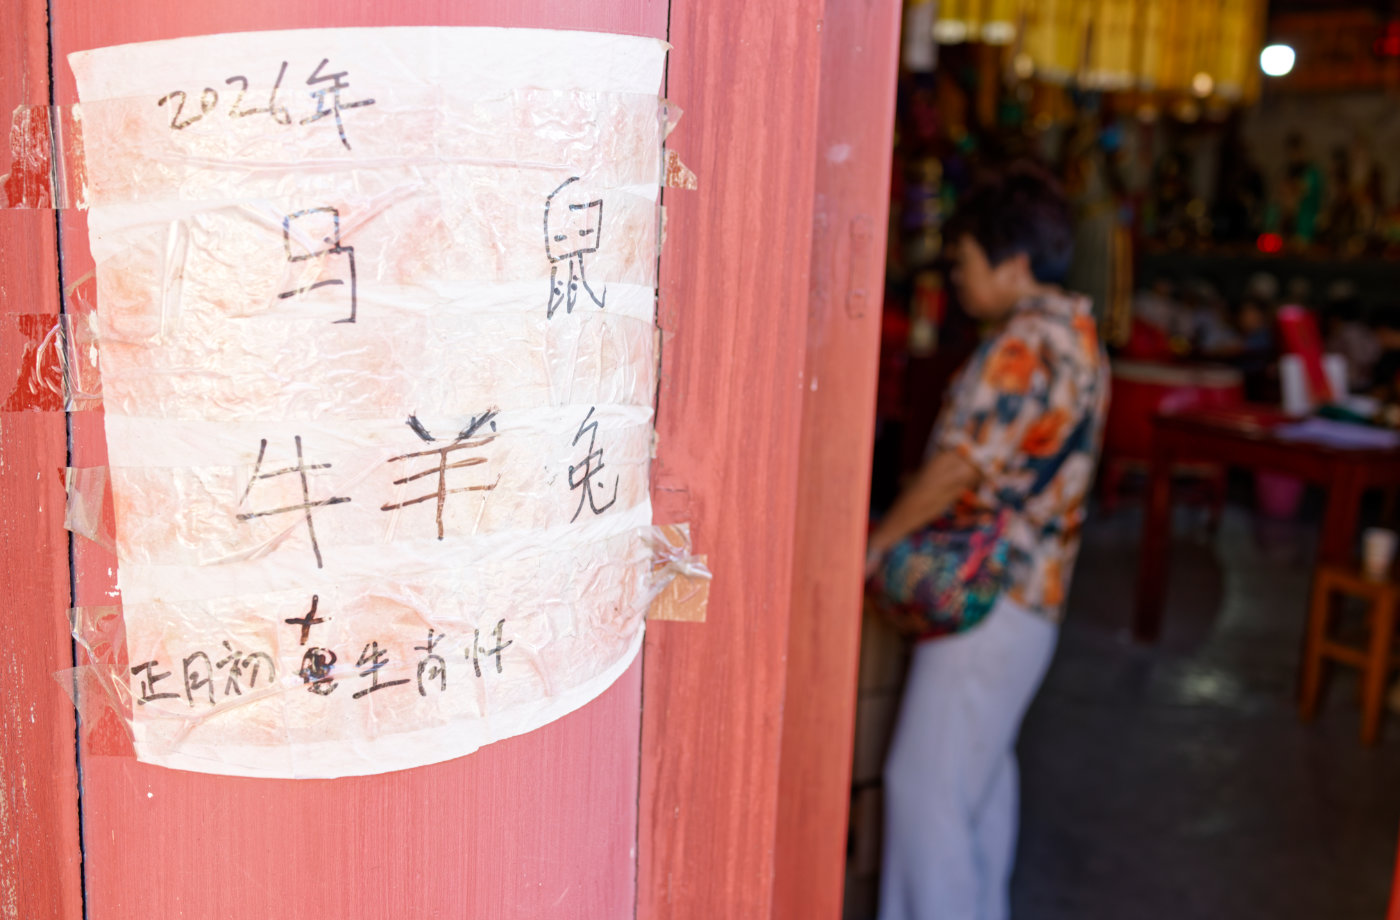 2026年
马 鼠
牛 羊 兔
十
正月初 生肖忏